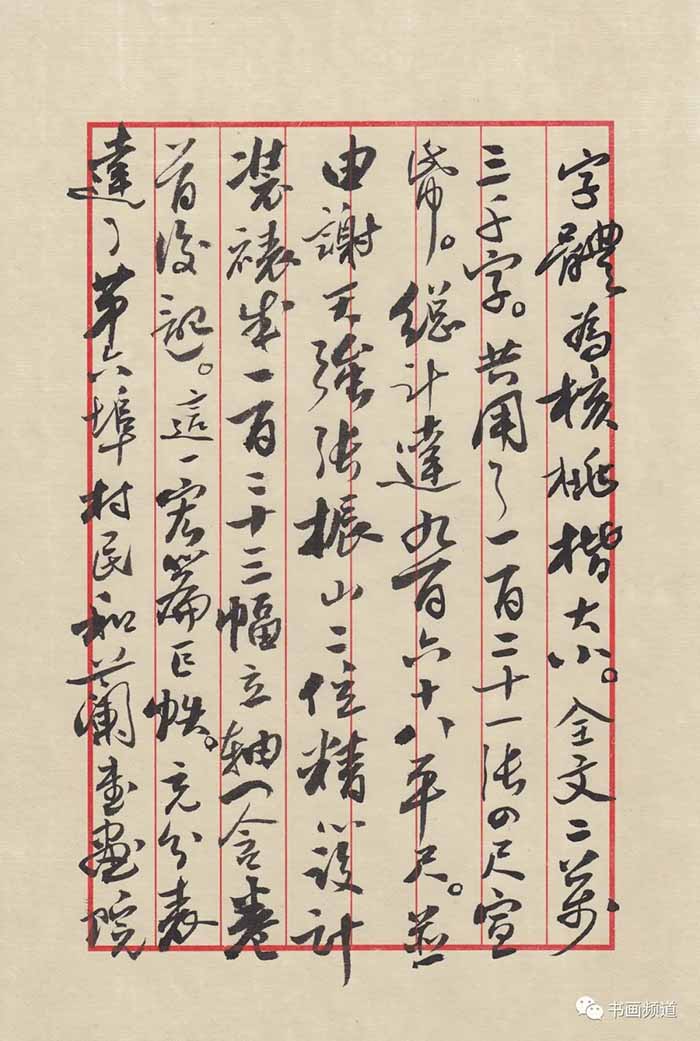 字體為核桃楷大小。全文二萬
三千字。共用了一百二十一张四尺宣
紙。總计達九百六十八平尺。并
由謝天强张振山二位精心设计
装裱成一百二十三幅立轴(含卷
首后記。這一宏篇巨帙。充分表
達了第六埠村民和兰阑書畫院
书画频道